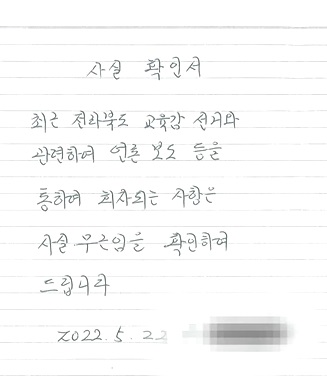 사실 확인서
최근 전라북도 교육감 선거와
관련하여 언론 보도 등을
통하여 회자되는 사항은
사실 무근임을 확인하여
드립니다
2022. 5. 22